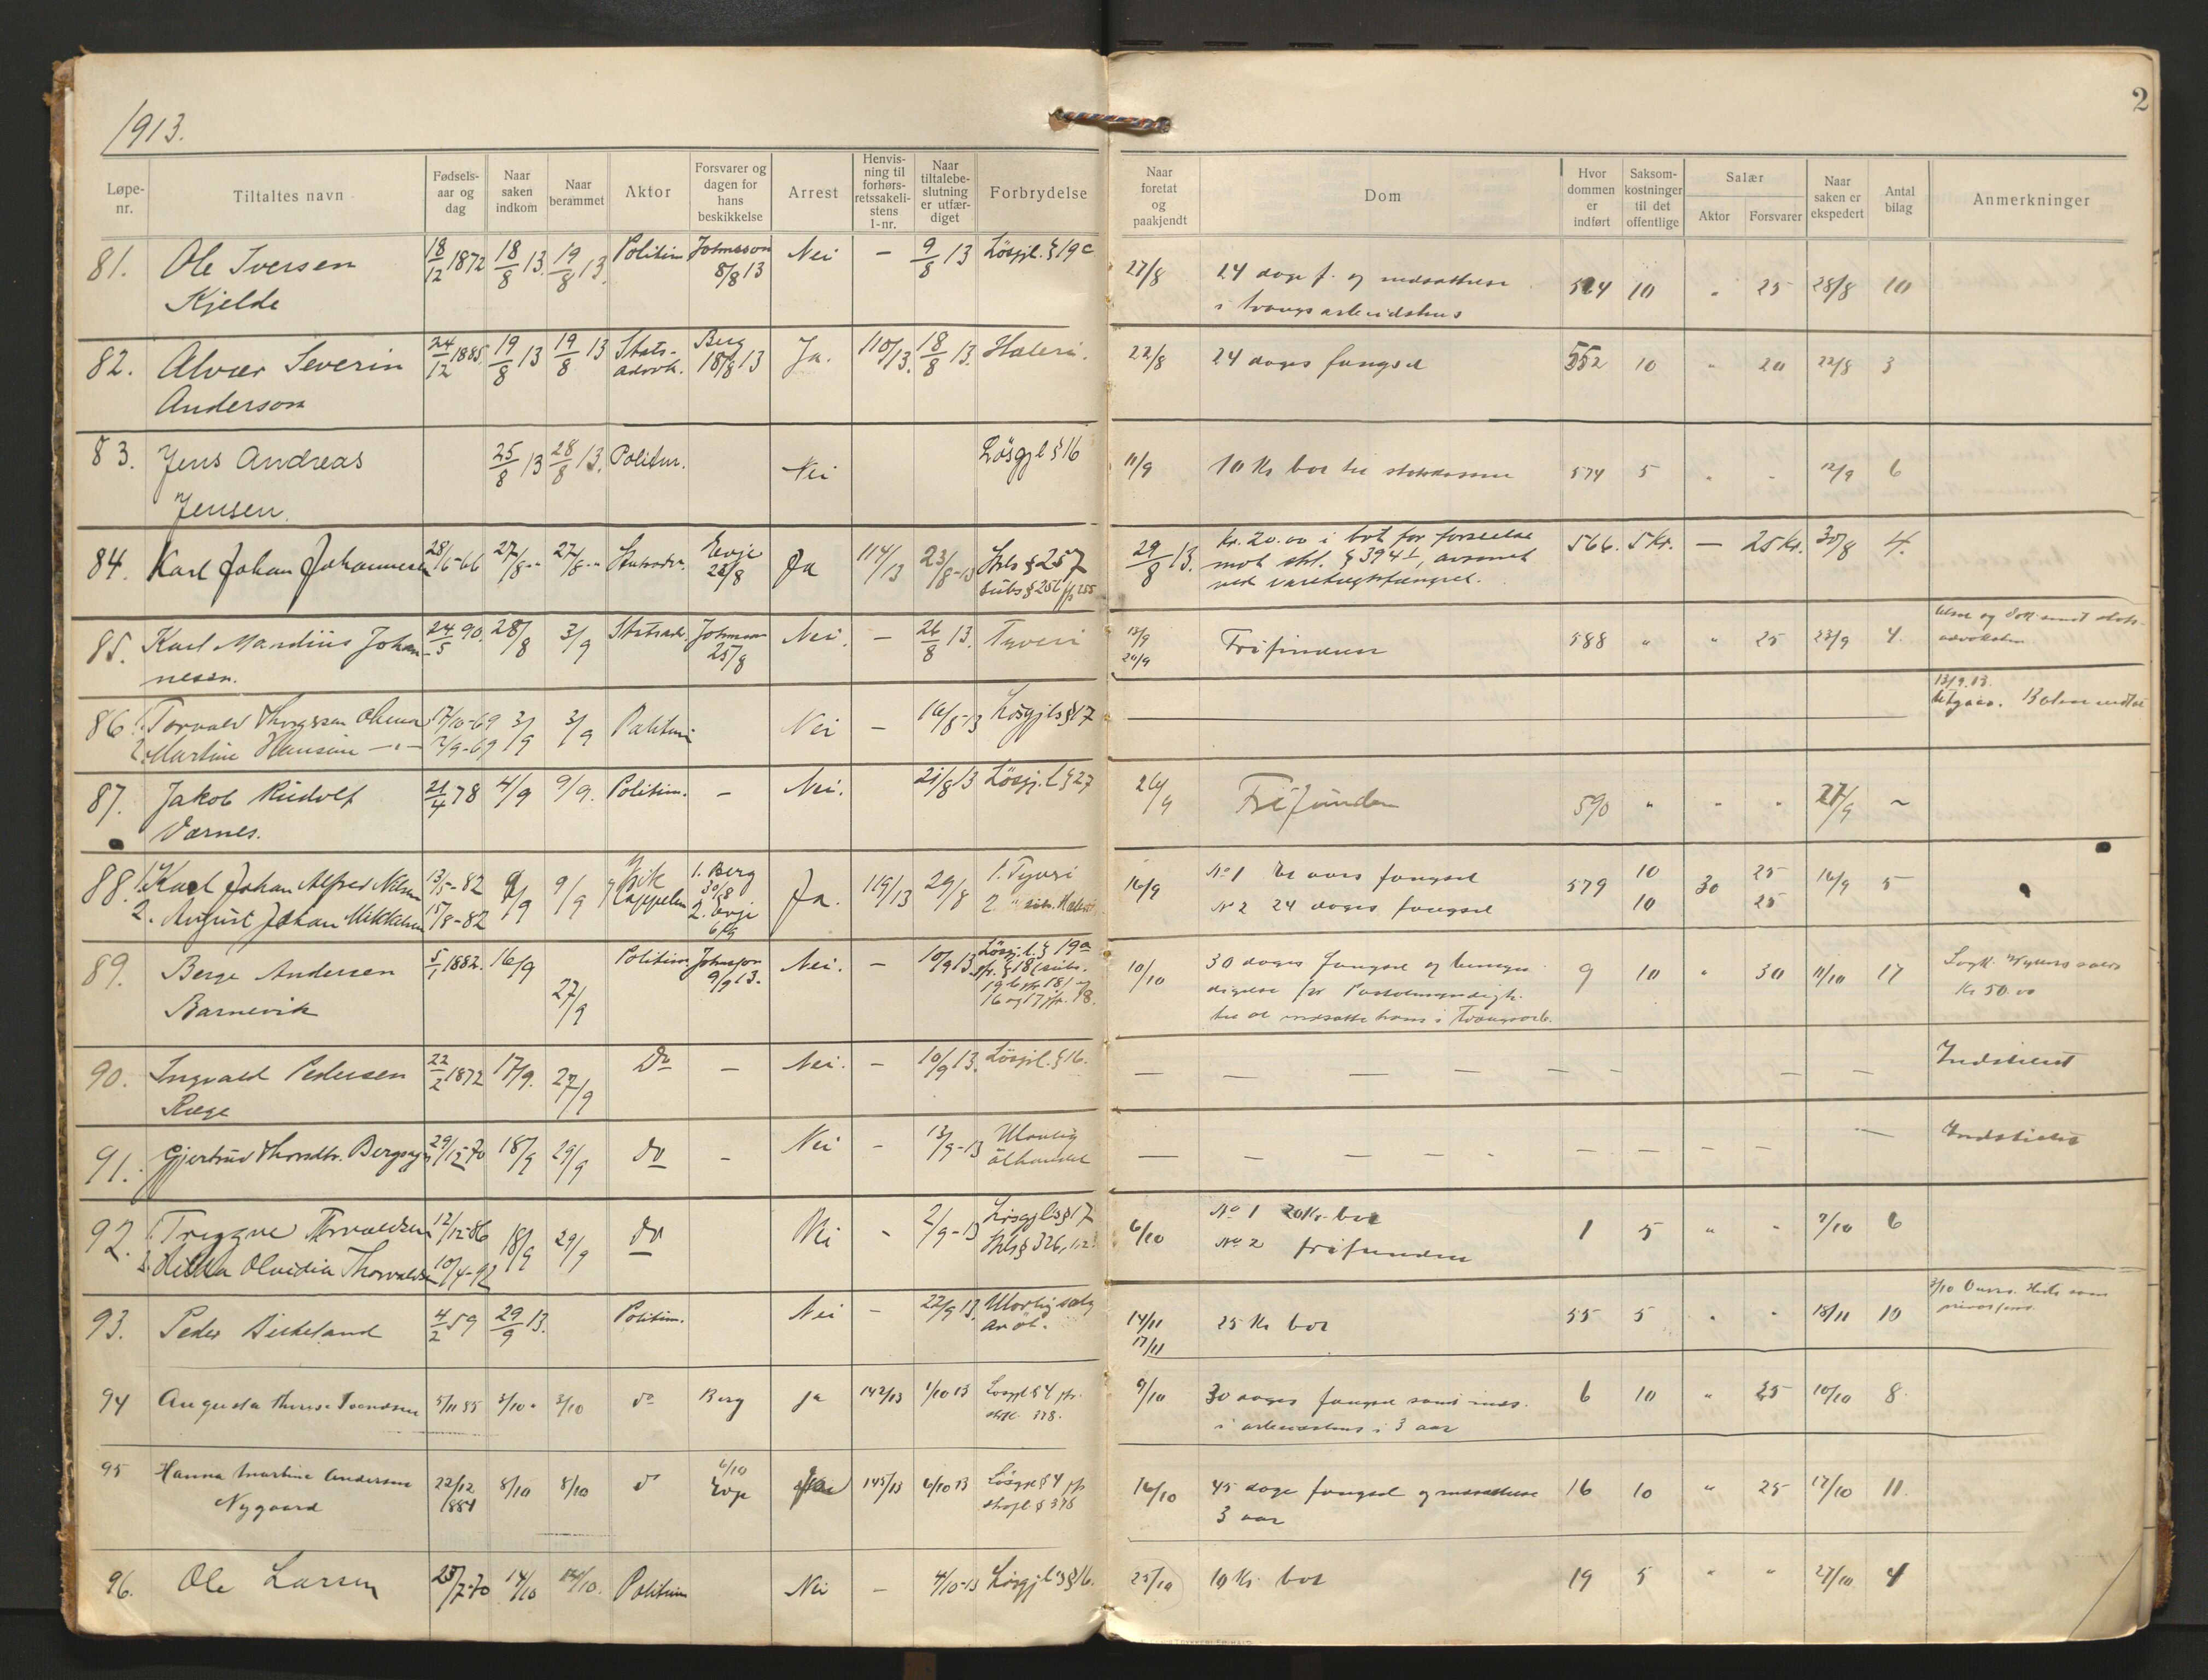 1913.
2
Løpe-nr.
Tiltaltes navn
Fødsels-aar og dag
Naar saken indkom
Naar berammet
Aktor
Forsvarer og dagen for hans beskikkelse
Arrest
Henvis-ning til forhørs-retssakeli-stens l-nr.
Naar tiltalebe-slutning er utfær-diget
Forbrydelse
Naar foretat og paakjendt
Dom
Hvor dommen er indført
Saksom-kostninger til det offentlige
Salær
Aktor
Forsvarer
Naar saken er ekspedert
Antal bilag
Anmerkninger
81. Ole Iversen 18/12 1872 18/8 13. 19/8 13. Politim Johnsson Nei — 9/8 13 Løsgjl. § 19 c 27/8 24 dage f. og indsættelse 524 10 " 25 28/8 10
Kjelde 8/8 13 i tvangsarbeidshus
82. Alvær Severin 24/12 1885. 19/8 13 19/8 13 Stats- Berg Ja. 110/13. 18/8 13. Haleri. 22/8 24 dages fængsel 552 10 " 20 22/8 3
Anderson advok. 18/8 13
83. Jens Andreas 25/8 13 28/8 13. Politim. Nei Løsgjl § 16 11/9 10 Kr bot til statskassen 574 5 " - 12/9 6
Jensen.
84. Karl Johan Johannesen 28/6-66 27/8 " 27/8 " Statsadv. Evje Ja 114/13 23/8-13 Strls § 257 29/8 13. Kr. 20.00 i bot for forseelse 566. 5 Kr. — 25 Kr. 30/8 4.
23/8 subs § 256 jfr 255 mot strl. § 394 1, avsonet
ved varetægtsfængsel.
85. Karl Mandius Johan 24/5 90. 28/8 3/9 Statsadv. Johnsson Nei. — 26/8 13. Tyveri 13/9 Frifunden 588 " " 25 23/9 4. og dok. sendt stats-
nesen. 25/8 20/9 advokaten
86. 1. Torvald Thorgersen 17/10-69 3/9 3/9 Politim Nei — 16/8-13 Løsgjls § 17 13/9.13.
2. Martine Hansine — " — 2/9-69 utgaar. Boten vedtat
87. Jakob Rudolf 21/4 78 4/9 9/9. Politim. - Nei. 21/8 13 Løsgj. l § 27 26/9 Frifunden 590 " - " 27/9 ~
Varnes.
88. 1. Karl Johan Alfred Nilsen 13/5-82 9/9 9/9 1. Berg Ja. 119/13 29/8 1. Tyveri 16/9 No 1 Et aars fængsel 579 10 30 25 16/9 5
2. August Johan Mikkelsen 15/8-82 Cappelen 30/8 2. " sub. Haleri No 2 24 dages fængsel 10 25
2. Evje
6/9
89. Berge Andersen 5/1 1882. 16/9 27/9 Politim. Johnsson Nei. — 10/9 13. Løsgj. l. § 19 a 10/10 30 dages fængsel og bemyn- 9 10 " 30 11/10 17
Barnevik 9/9 13. jfr. § 18 (subs. digelse for Paatalemyndigh.
19 b jfr 18) og til at indsætte ham i Tvangsarb. Kr 50.00
16 og 17 jfr. 18.
90. Ingvald Pedersen 22/2 1872 17/9. 27/9 Do — Nei. — 10/9 13. Løsgjl. § 16. — — — — — — — — Indstillet
Ræge
91. Gjertrud Thorsdtr. Bergsagel 29/12-70 18/9 29/9 do - Nei - 13/9-13 Ulovlig — — — — — — — — Indstillet
ølhandel
92. 1. Trygve Torvaldsen 12/12-86 18/9 29/9 do Nei - 2/9-13 Løsgjls § 17 6/10 No 1 20 Kr. bot 1 5 " - 7/10 6
2. Olvidia Thorvaldsen 10/4-92 Strls § 326, 1.2. No 2 frifunden
93. Peder Birkeland 4/2 59 29/9 13. Politim. Nei — 22/9 13. Ulovlig salg 14/11 25 Kr bot 55 5 " " 18/11 10
av øl. 17/11
94 Augusta Therese Svendsen 5/11 85 3/10 " 3/10 do Berg Ja 142/13 1/10 13 Løsgjl § 4 jfr. 9/10 30 dages fængsel samt inds. 6 10 " 25 10/10 8.
strl. 378. i arbeidshus i 3 aar
95 Hanna Martine Andersen 22/12 8/10 8/10 do 6/10 Ja 145/13 6/10 13 Løsgjl § 4 jfr 16/10 45 dage fængsel og indsættelse 16 10 " 25 17/10 11.
Nygaard 1884 Evje strafl § 378 3 aar
96. Ole Larsen 23/7-70 14/10 14/10. Politim Nei — 4/10-13 Løsgjls § 16. 25/10 10 Kr. bot 19 5 " " 27/10 4